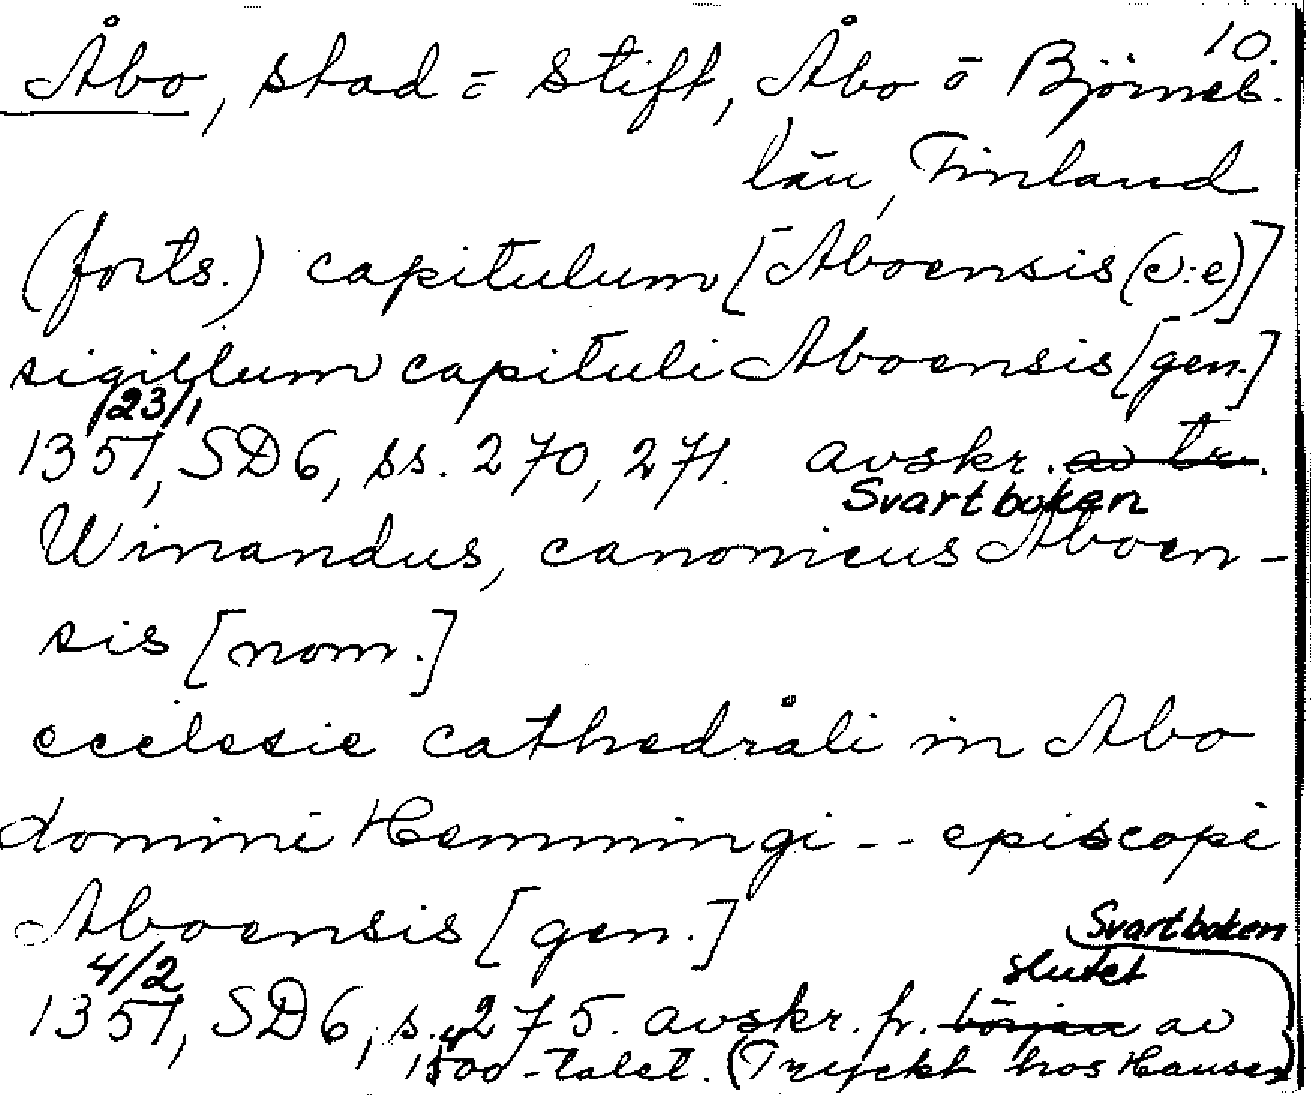 10.
Åbo, stad o stift, Åbo o Björneb.
län, Finland
(forts.) capitulum [Aboensis (ɔ: e)]
sigillum capituli Aboensis [gen.]
23/1
1357, SD 6, ss. 270, 271. avskr. av tr.
Svartboken
Winandus, canonicus Aboen-
sis [nom.]
ecclesie cathedrali in Abo
domini Hemmingi -- episcopi
Aboensis [gen.]
Svartboken
4/2 slutet
1357, SD 6, s. 275. avskr. fr. början av
1400-talet. (Tryckt hos Hausen)